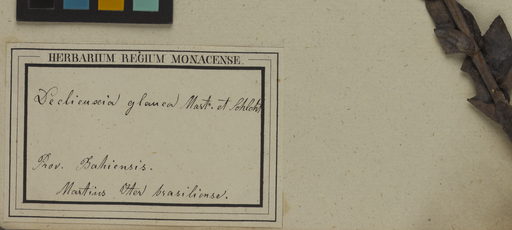 HERBARIUM REGIUM MONACENSE.
Declieuxia glauca Mart. et Schlcht
Prov. Bahiensis.
Martius Iter brasiliense.